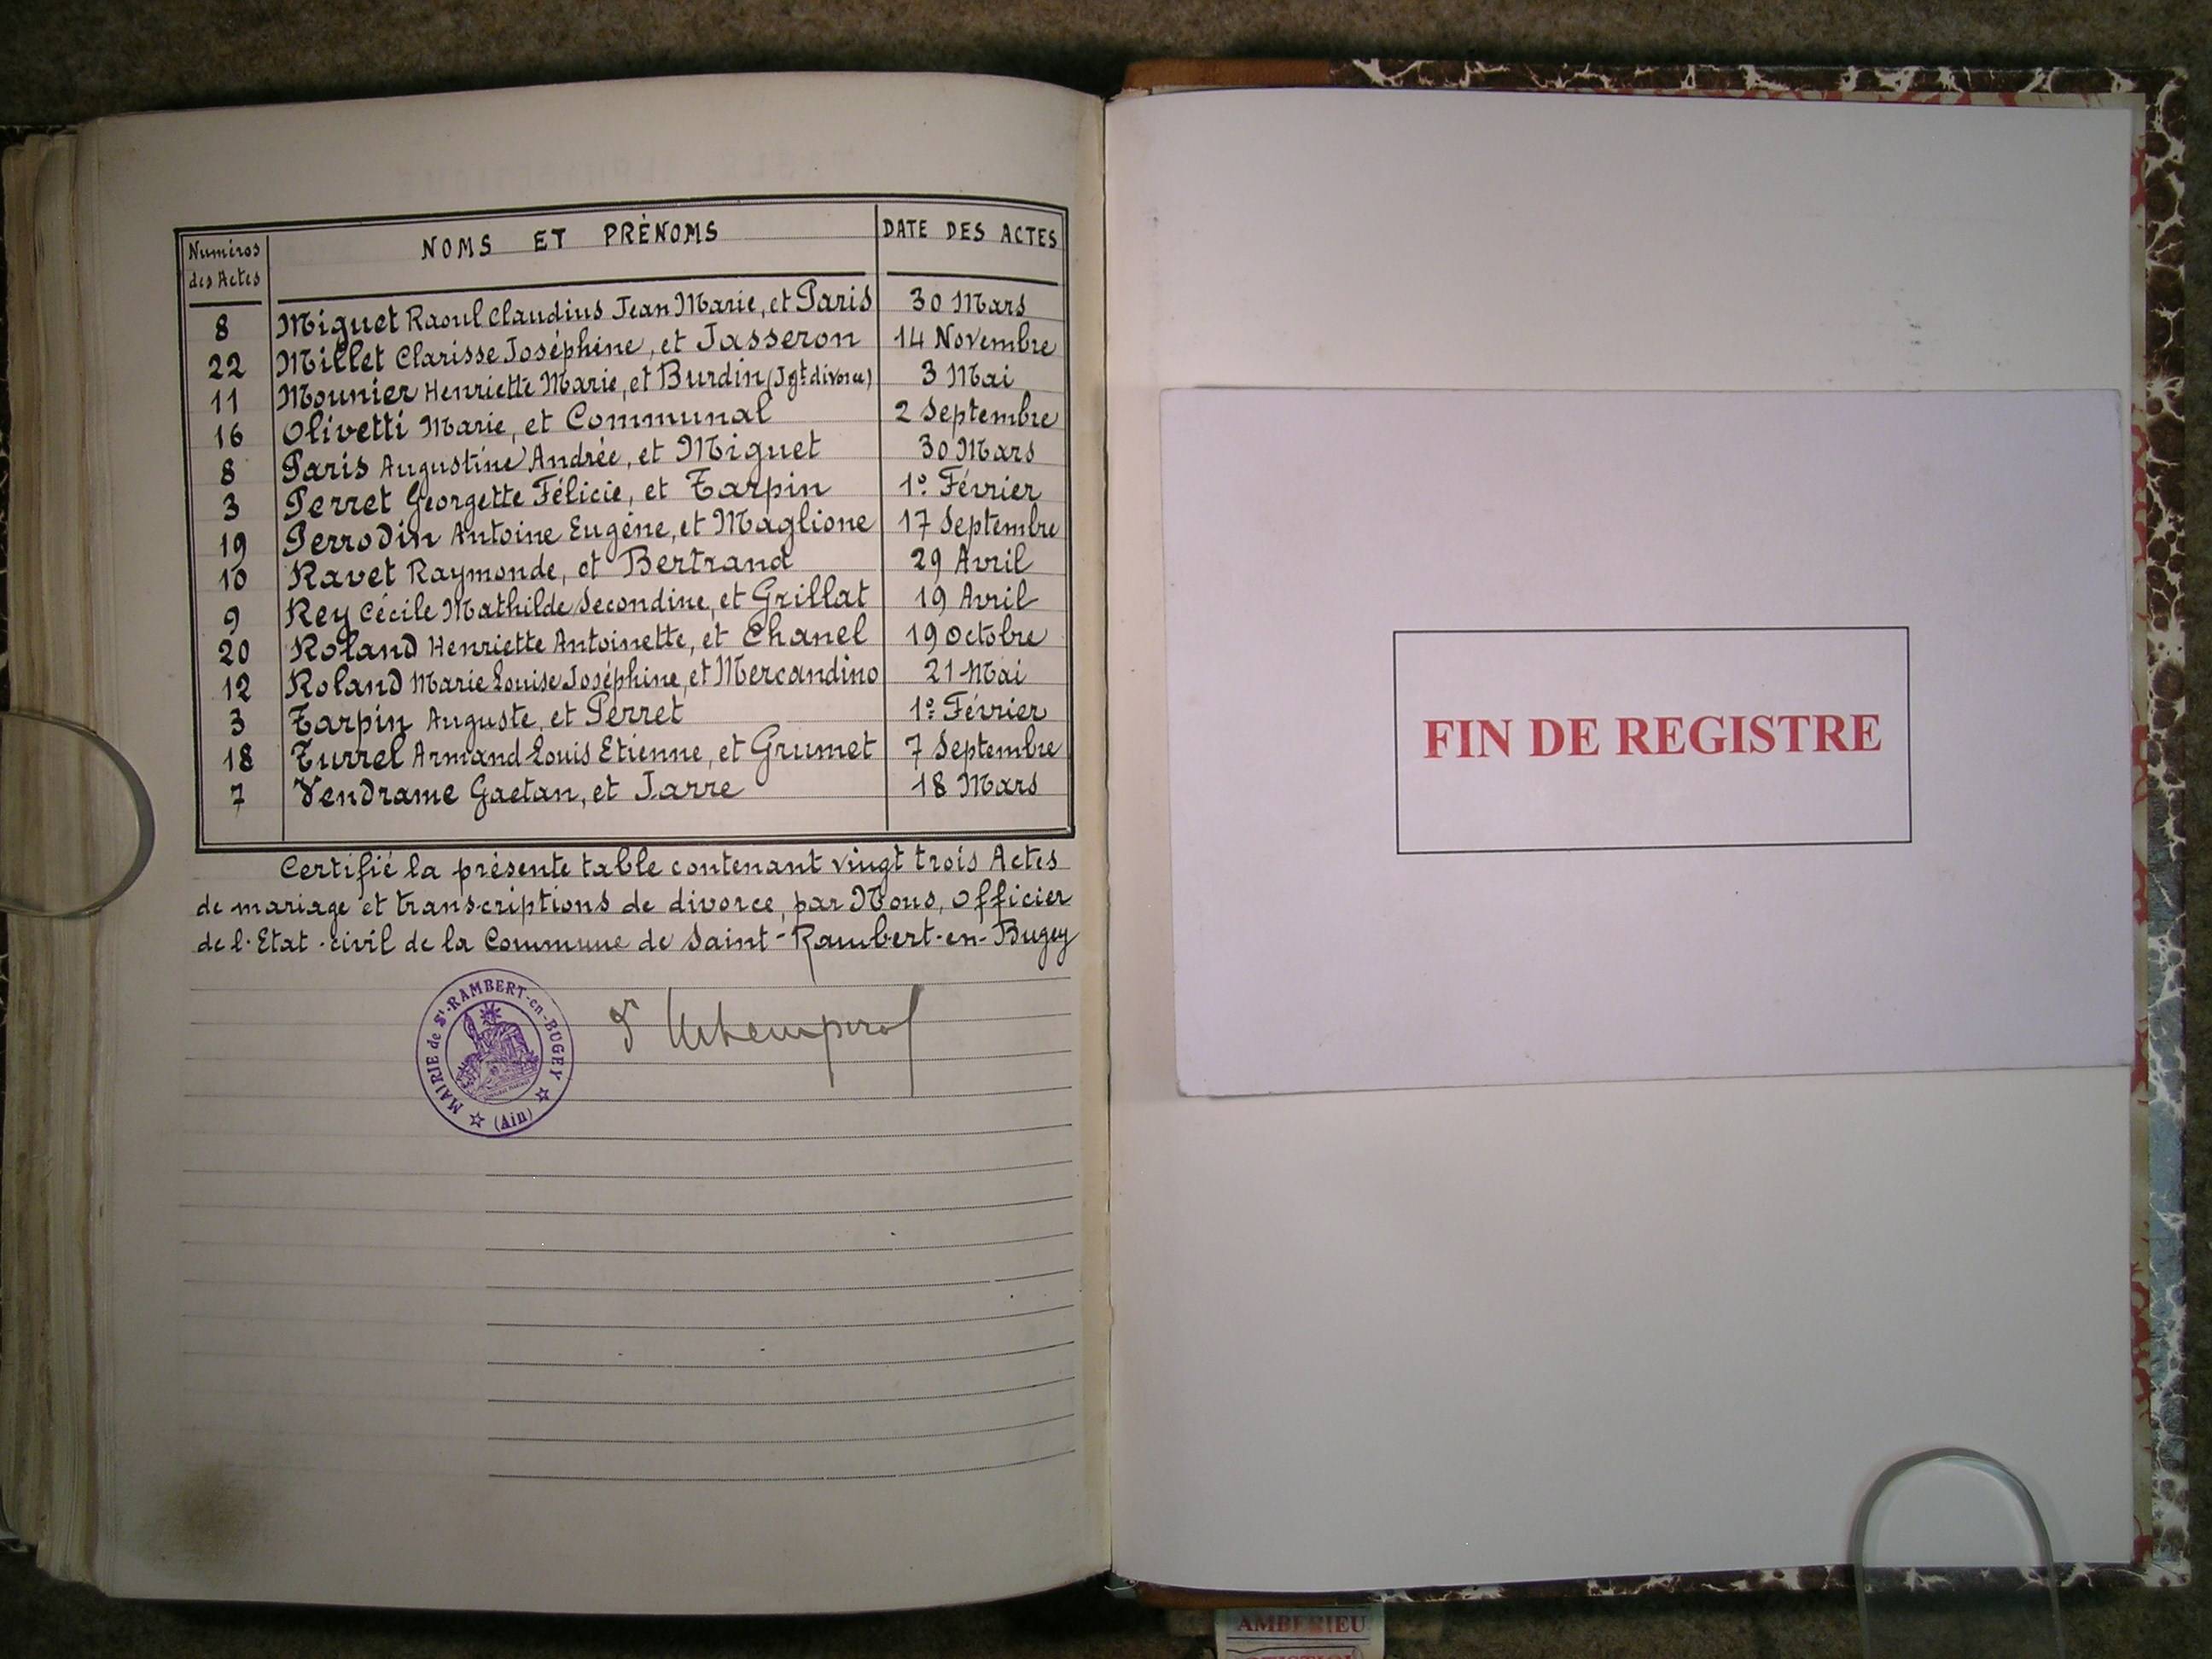 Numéros des Actes NOMS ET PRÉNOMS DATE DES ACTES
8 Miguet Raoul Claudius Jean Marie, et Paris 30 Mars
22 Millet Clarisse Joséphine, et Jasseron 14 Novembre
11 Mounier Henriette Marie, et Burdin (Jgt divorce) 3 Mai
16 Olivetti Marie, et Communal 2 Septembre
8 Paris Augustine Andrée, et Miguet 30 Mars
3 Perret Georgette Félicie, et Tarpin 1º Février
19 Perrodin Antoine Eugène, et Maglione 17 Septembre
10 Ravet Raymonde, et Bertrand 29 Avril
9 Rey Cécile Mathilde Secondine, et Grillat 19 Avril
20 Roland Henriette Antoinette, et Chanel 19 Octobre
12 Roland Marie Louise Joséphine, et Mercandino 21 Mai
3 Tarpin Auguste, et Perret 1º Février
18 Turrel Armand Louis Etienne, et Grumet 7 Septembre
7 Vendrame Gaetan, et Jarre 18 Mars
Certifié la présente table contenant vingt trois Actes
de mariage et transcriptions de divorce, par Nous, Officier
de l'Etat-civil de la Commune de Saint-Rambert-en-Bugey
MAIRIE de St-RAMBERT-en-BUGEY
(Ain)
FIN DE REGISTRE
AMBERIEU